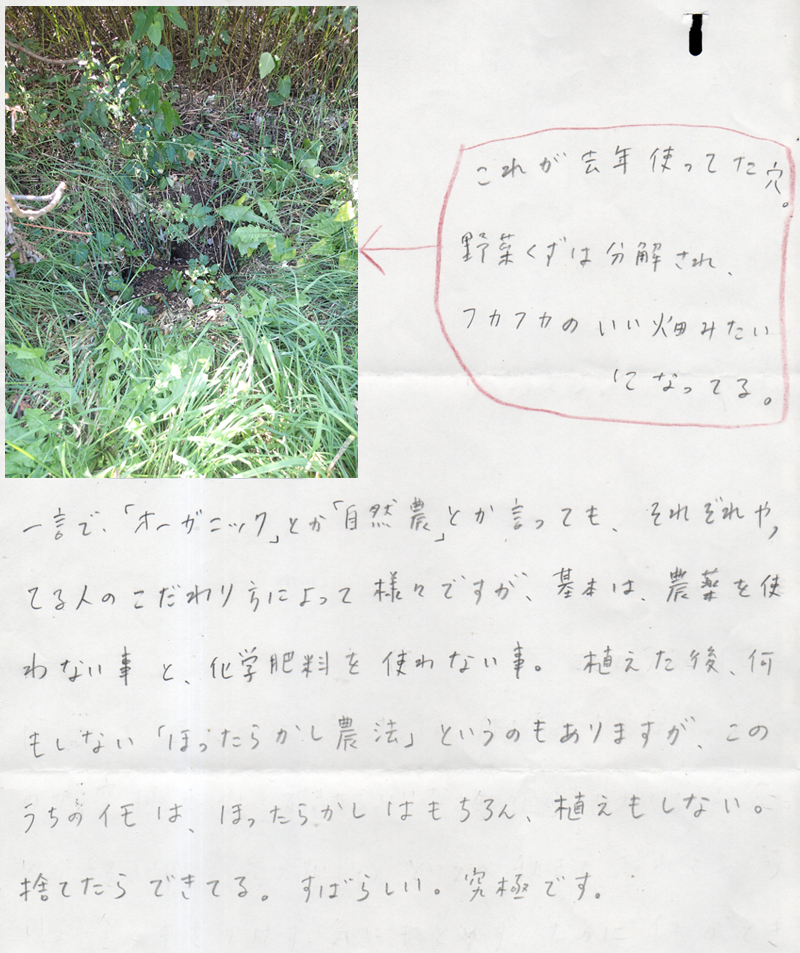 これが去年使ってた穴。
野菜くずは分解され、
フカフカのいい畑みたい
になってる。
一言で、「オーガニック」とか「自然農」とか言っても、それぞれやっ
てる人のこだわり方によって様々ですが、基本は、農薬を使
わない事と、化学肥料を使わない事。植えた後、何
もしない「ほったらかし農法」というのもありますが、この
うちのイモは、ほったらかしはもちろん、植えもしない。
捨てたらできてる。すばらしい。究極です。